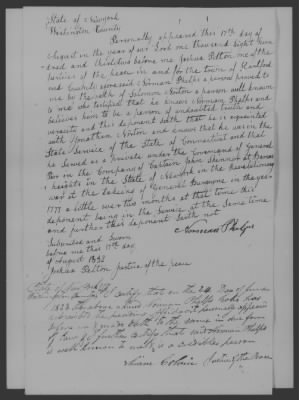 State of Newyork
Washington County
Personally appeared this 17th day of
August in the year of our Lord one thousand Eight hun
dred and thirty two before me Joshua Pelton one of the
justices of the peace in and for the town of Hartford
and County aforesaid Norman Phelps a person proved to
me by the oath of Solomon Norton a person well known
to me who testified that he knows Norman Phelps and
believes him to be a person of undoubted truth and
veracity and this deponent saith that he is acquainted
with Jonathan Norton and knows that he was in the
State Service of the State of Connecticut and that
he served as a private under the Command of General
in the Company of Captain John at
heights in the State of Newyork in the Revolutionary
war at the takeing of General Burgoyne in the year
1777 a little over two months at that time this
deponent being in the service at the same time
and further this deponent saith not
Norman Phelps
Subscribed and Sworn
before me this 17th day
of August 1832
Joshua Pelton justice of the peace
State of New York
Washington County I certify that on the 24 Day of
the above named Norman Phelps who has
subscribed the foregoing affidavit personally appeared
before me & made oath to the same in due form
of law & I further certify that said Norman Phelps
is well known to me & is a credible person
Justice of the Peace